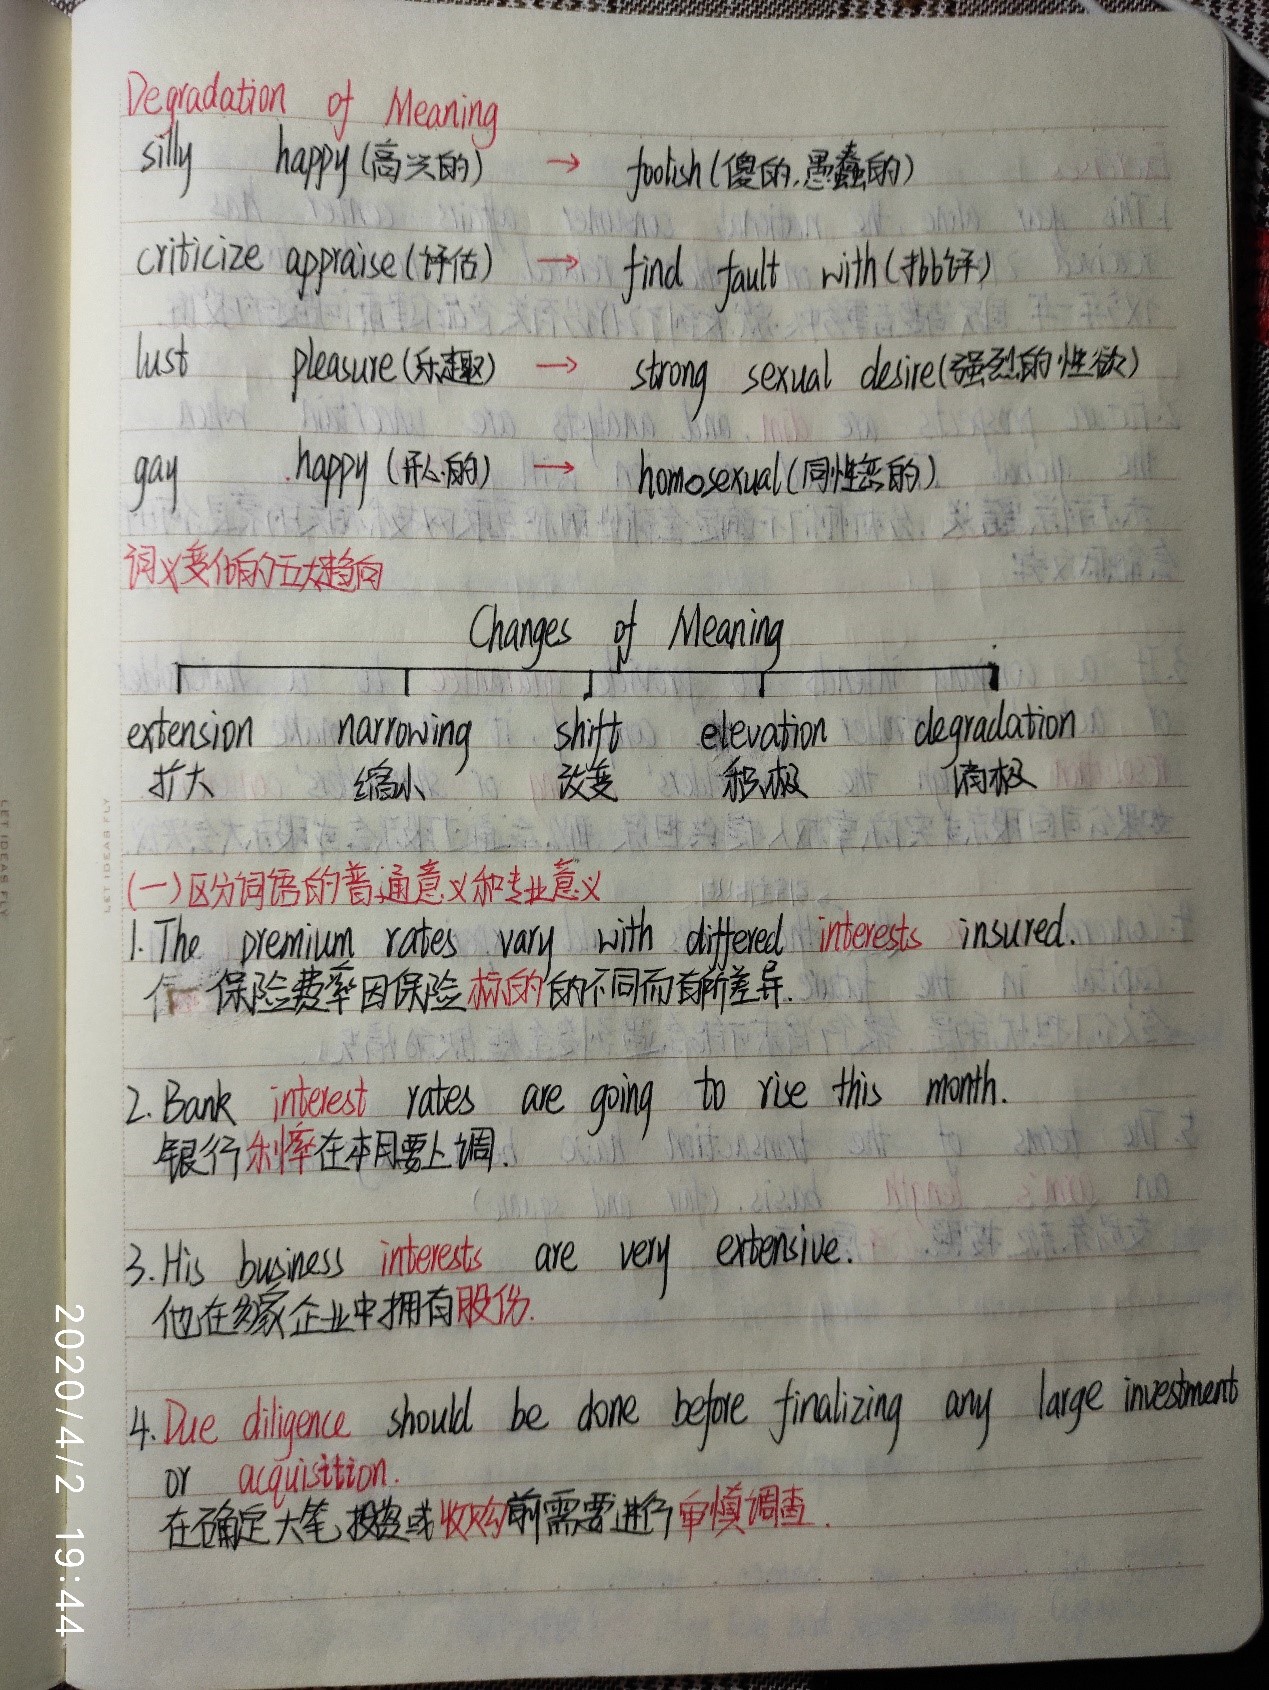 Degradation of Meaning
silly happy(高兴的) → foolish(傻的,愚蠢的)
criticize appraise(评估) → find fault with(批评)
lust pleasure(乐趣) → strong sexual desire(强烈的性欲)
gay happy(开心的) → homosexual(同性恋的)
词义变化的五大趋向
Changes of Meaning
extension narrowing shift elevation degradation
扩大 缩小 改变 积极 消极
(一)区分词语的普通意义和专业意义
1. The premium rates vary with differed interests insured.
保险费率因保险标的的不同而有所差异.
2. Bank interest rates are going to rise this month.
银行利率在本月要上调.
3. His business interests are very extensive.
他在多家企业中拥有股份.
4. Due diligence should be done before finalizing any large investment
or acquisition.
在确定大笔投资或收购前需要进行审慎调查.
2020/4/2 19:44
LET IDEAS FLY